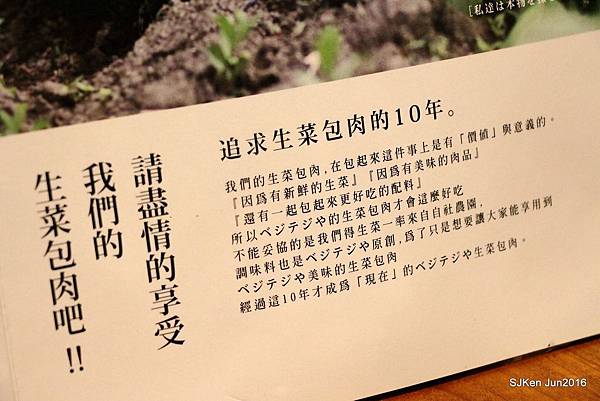 [私達は本物を
追求生菜包肉的10年。
我們的生菜包肉,在包起來這件事上是有「價值」與意義的。
『因為有新鮮的生菜』『因為有美味的肉品』
『還有一起包起來更好吃的配料』
所以ベジテジや的生菜包肉才會這麼好吃
不能妥協的是我們得生菜一率來自自社農園,
調味料也是ベジテジや原創,為了只是想要讓大家能享用到
ベジテジや美味的生菜包肉
經過這10年才成為「現在」的ベジテジや生菜包肉。
請盡情的享受
我們的
生菜包肉吧!!
SJKen Jun2016